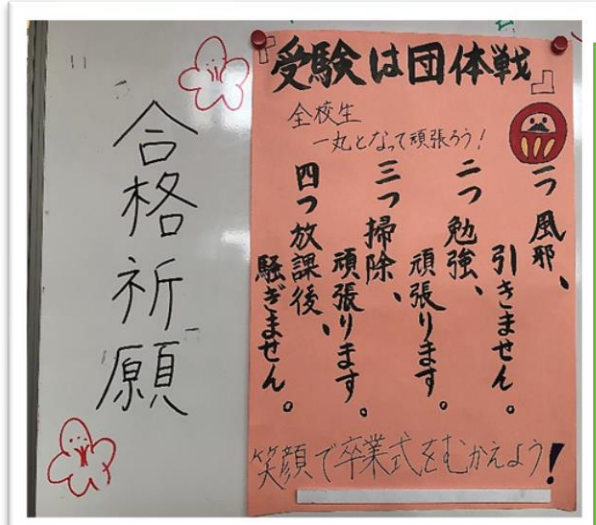 合格祈願
『受験は団体戦』
全校生
一丸となって頑張ろう！
一つ風邪、
引きません。
二つ勉強、
頑張ります。
三つ掃除、
頑張ります。
四つ放課後、
騒ぎません。
笑顔で卒業式をむかえよう！